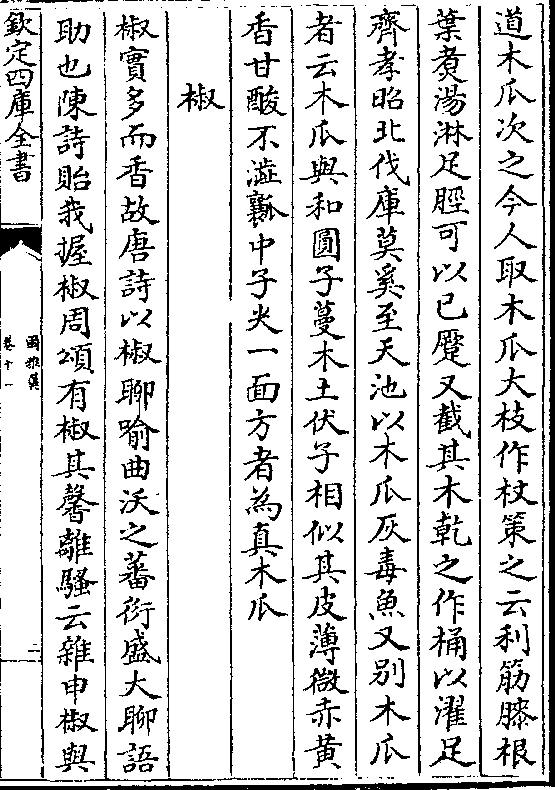 道木瓜次之今人取木瓜大枝作杖策之云利筋膝根
葉煑湯淋足脛可以已蹷又截其木乾之作桶以濯足
齊孝昭北伐庫莫奚至天池以木瓜灰毒魚又别木瓜
者云木瓜與和圓子蔓木土伏子相似其皮薄微赤黄
香甘酸不澁瓤中子尖一面方者為真木瓜
椒
椒實多而香故唐詩以椒聊喻曲沃之蕃衍盛大聊語
助也陳詩貽我握椒周頌有椒其馨離騷云雜申椒與
欽定四庫全書
爾雅翼
卷十一
二